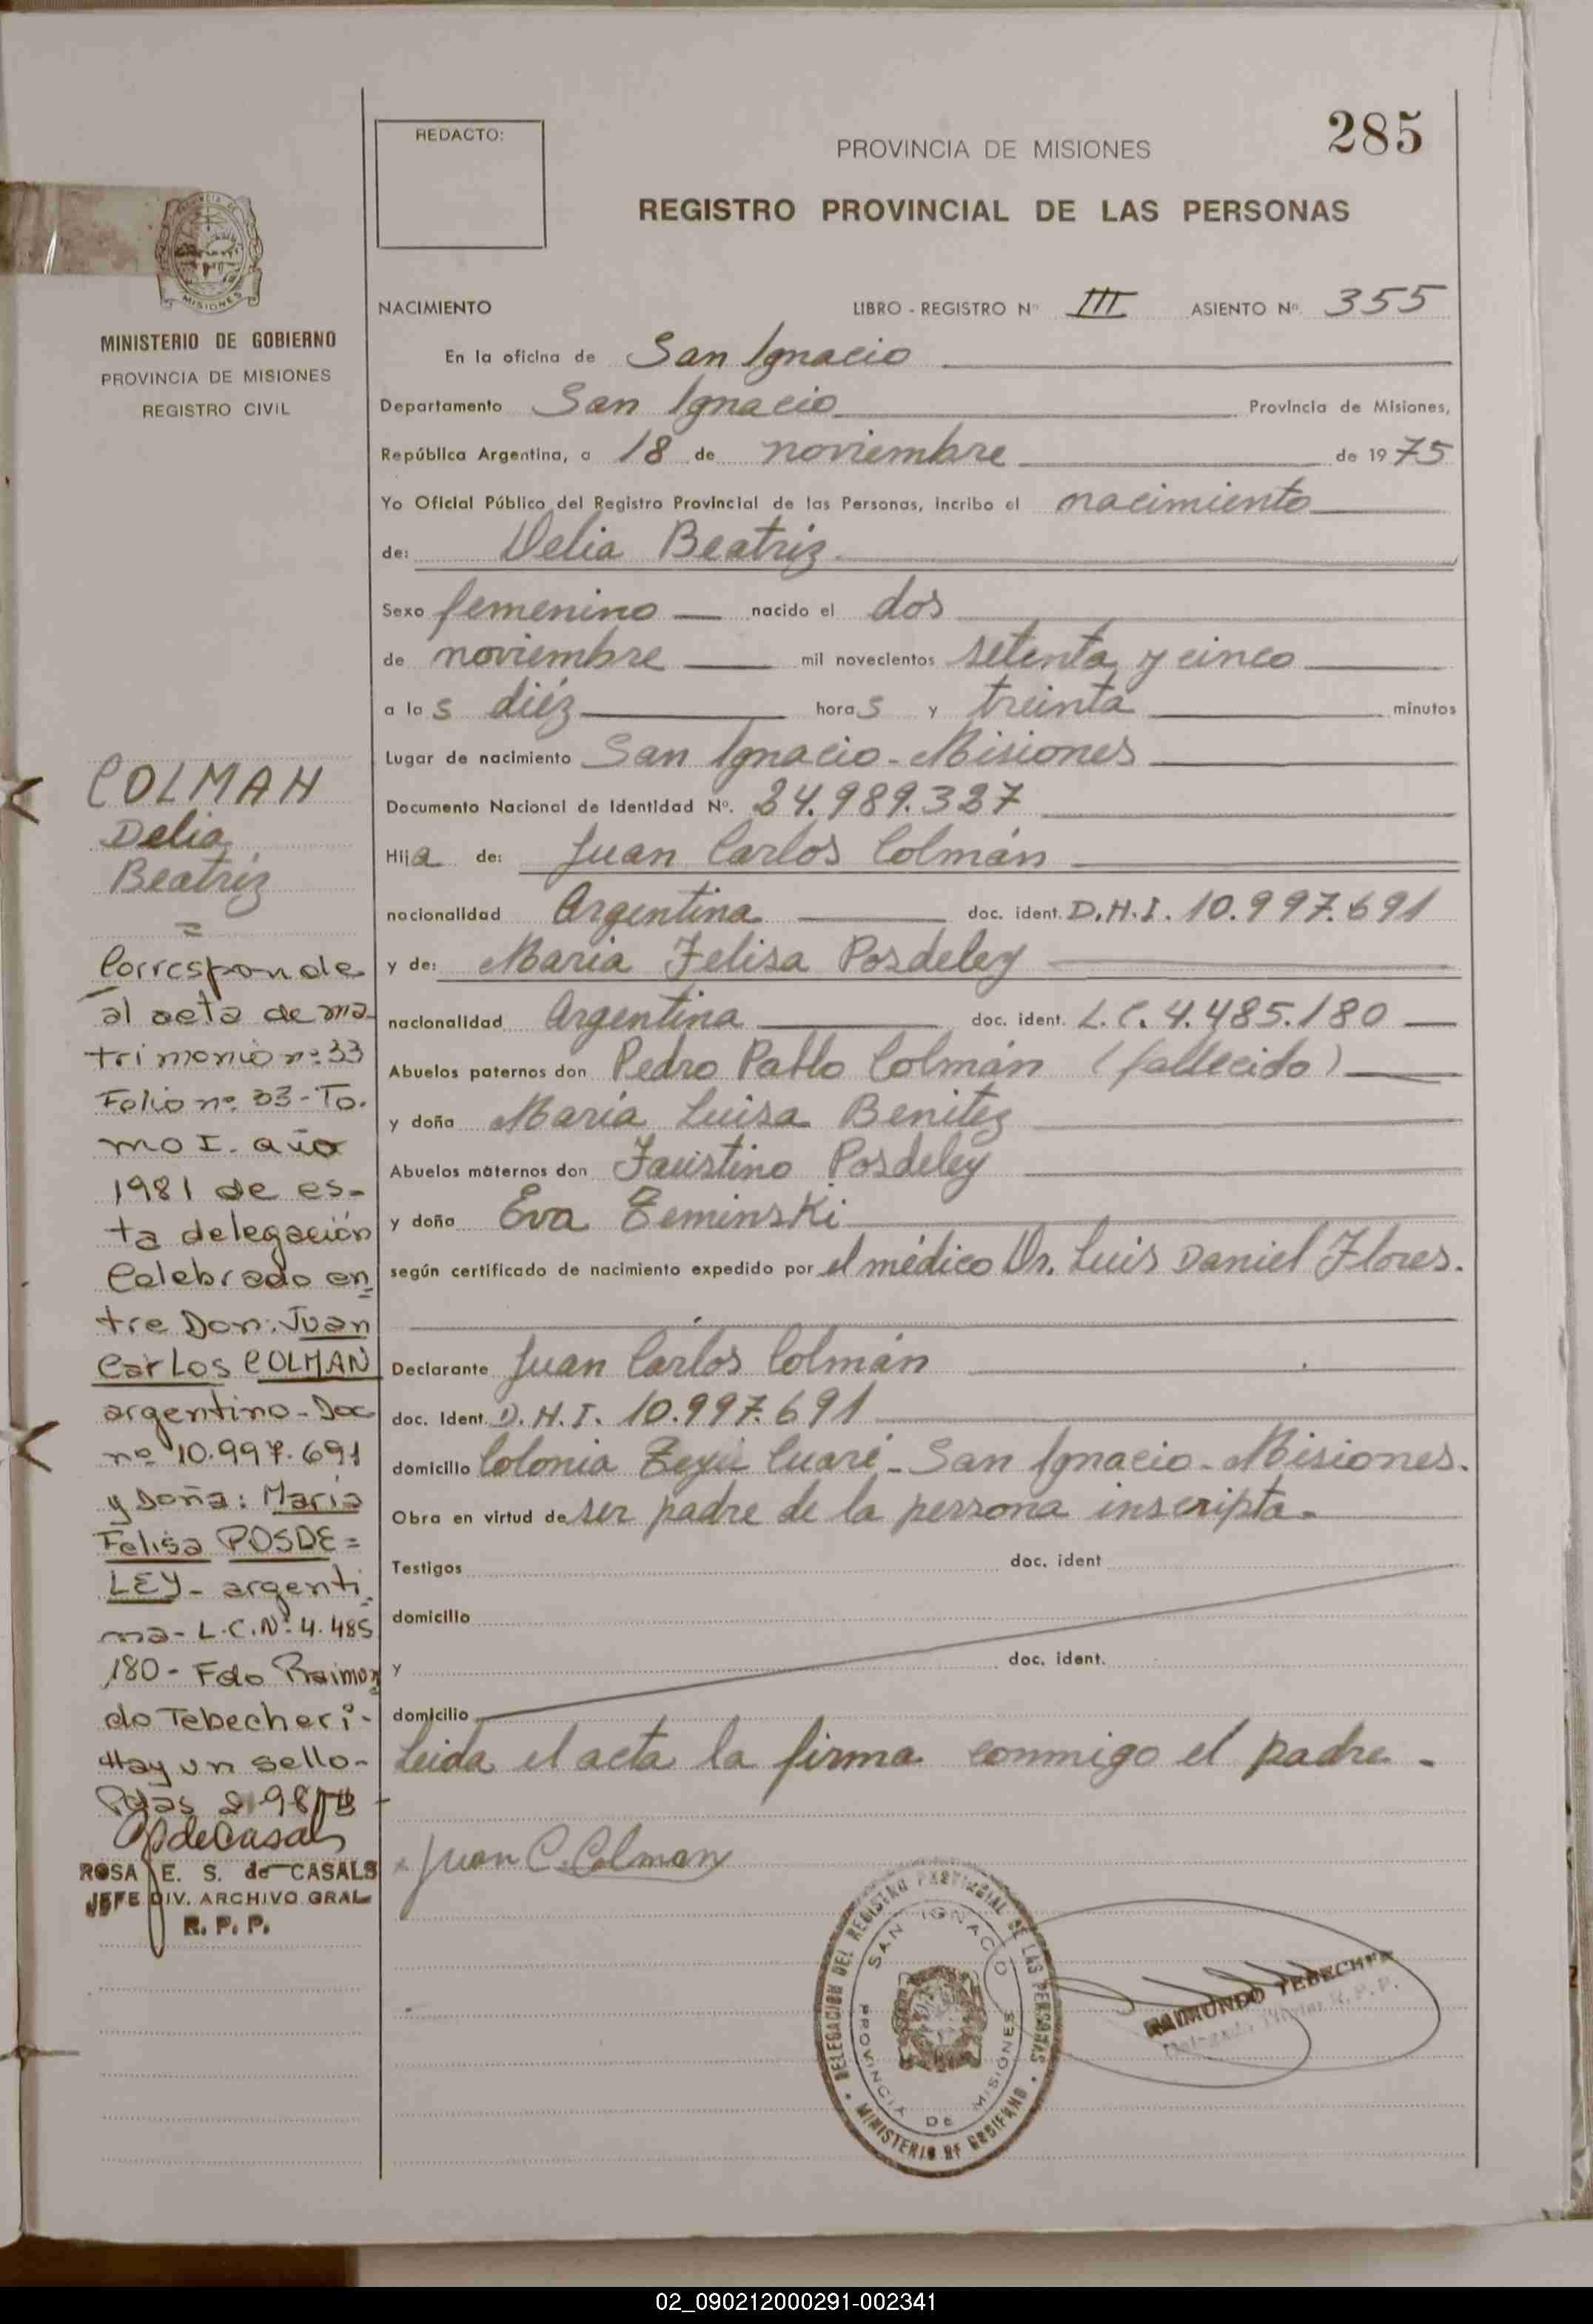 285
REDACTO:
PROVINCIA DE MISIONES
REGISTRO PROVINCIAL DE LAS PERSONAS
MISIONES
MINISTERIO DE GOBIERNO
PROVINCIA DE MISIONES
REGISTRO CIVIL
NACIMIENTO LIBRO - REGISTRO Nº III ASIENTO Nº 355
En la oficina de San Ignacio
Departamento San Ignacio Provincia de Misiones,
República Argentina, a 18 de noviembre de 1975
Yo Oficial Público del Registro Provincial de las Personas, incribo el nacimiento
de: Delia Beatriz
Sexo femenino nacido el dos
de noviembre mil novecientos setenta y cinco
a las diéz horas y treinta minutos
Lugar de nacimiento San Ignacio - Misiones
Documento Nacional de Identidad Nº. 24.989.327
Hija de: Juan Carlos Colmán
nacionalidad Argentina doc. ident. D.N.I. 10.997.691
y de: Maria Felisa Posdeley
nacionalidad Argentina doc. ident. L.C. 4.485.180
Abuelos paternos don Pedro Pablo Colmán (fallecido)
y doña María Luisa Benitez
Abuelos maternos don Faustino Posdeley
y doña Eva Zeminski
según certificado de nacimiento expedido por el médico Dr. Luis Daniel Flores.
Declarante Juan Carlos Colmán
doc. Ident. D.N.I. 10.997.691
domicilio Colonia Teyú Cuaré - San Ignacio - Misiones.
Obra en virtud de ser padre de la persona inscripta.
Testigos doc. ident
domicilio
y doc. ident.
domicilio
Leida el acta la firma conmigo el padre -
Juan C. Colman
COLMAN
Delia
Beatriz
=
Corresponde
al acta de ma-
trimonio nº 33
Folio nº 33 - To-
mo I. año
1981 de es-
ta delegación
Celebrado en
tre Don: Juan
Carlos COLMAN
argentino - Doc
nº 10.997.691
y Doña: María
Felisa POSDE=
LEY - argenti
na - L.C. Nº 4.485
180 - Fdo Raimon
do Tebecheri -
Hay un sello -
Pdas
ROSA E. S. de CASALS
JEFE DIV. ARCHIVO GRAL
R. P. P.
DELEGACION DEL REGISTRO PROVINCIAL DE LAS PERSONAS
SAN IGNACIO
PROVINCIA DE MISIONES
MINISTERIO DE GOBIERNO
RAIMUNDO
02_090212000291-002341